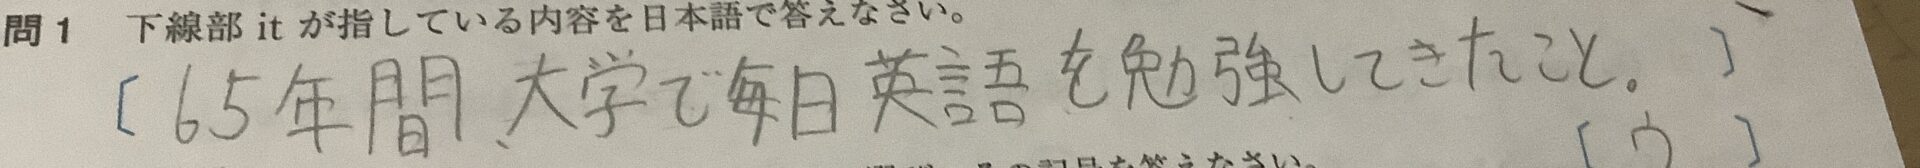 問1 下線部 it が指している内容を日本語で答えなさい。
[ 65年間、大学で毎日英語を勉強してきたこと。 ]
[ ウ ]
その記号を答えなさい。